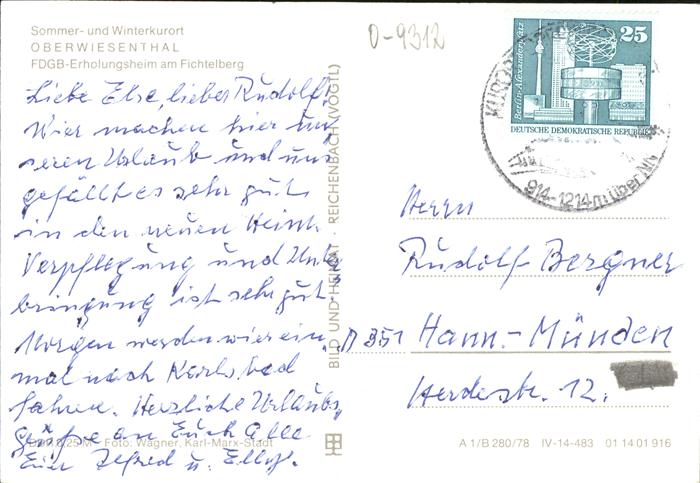 Sommer- und Winterkurort
OBERWIESENTHAL
FDGB-Erholungsheim am Fichtelberg
Liebe Else, lieber Rudolf!
Wier machen hier un
seren Urlaub und uns
gefällt es sehr gut
in den neuen Heim.
Verpflegung und Unter
bringung ist sehr gut.
Morgen werden wier ein
mal nach Karlsbad
fahren. Herzliche Urlaubs
grüße an Euch Alle
Eure Alfred u. Elly.
0,25 M · Foto: Wagner, Karl-Marx-Stadt
BILD UND HEIMAT · REICHENBACH (VOGTL)
0-9312
25
Berlin-Alexanderplatz
DEUTSCHE DEMOKRATISCHE REPUBLIK
914-1214 m über NN
Herrn
Rudolf Bergner
D 351 Hann.-Münden
Herderstr. 12.
A 1/B 280/78 IV-14-483 01 14 01 916